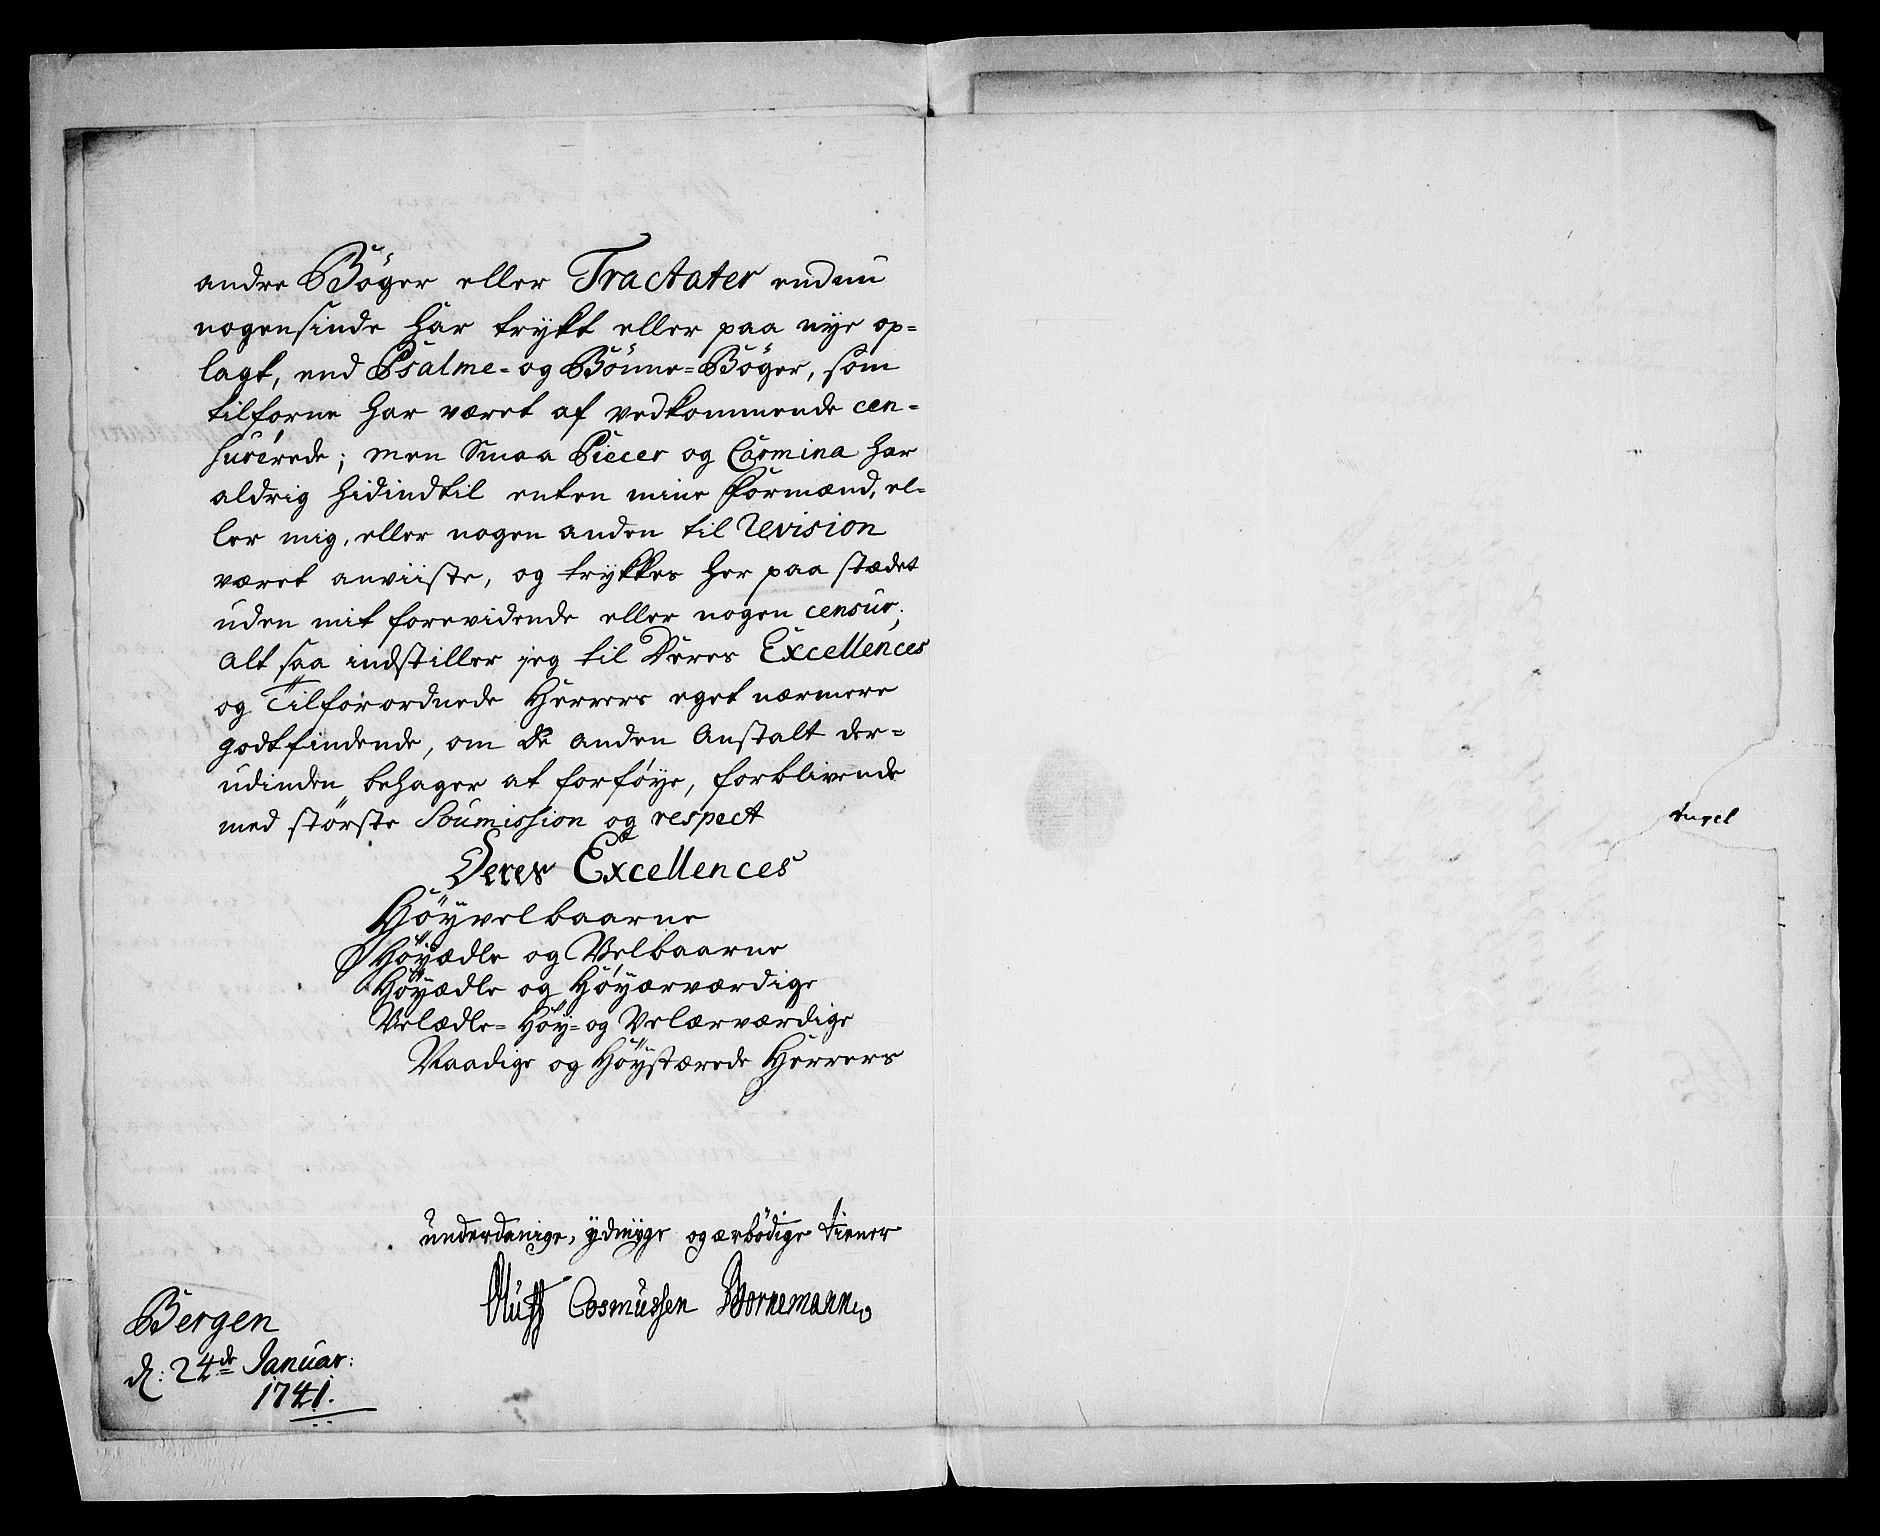 andre Böger eller Tractater endnu
nogensinde har trykt eller paa nye op=
lagt, end Psalme- og Bönne=Böger, som
tilforne har været af vedkommende cen=
surerede; men Smaa Piecer og Carmina har
aldrig hidindtil enten mine Formænd, el=
ler mig, eller nogen anden til Revision
været anviiste, og trykkes her paa stædet
uden mit forevidende eller nogen censur;
alt saa indstiller jeg til Deres Excellences
og Tilforordnede Herrers eget nærmere
godtfindende, om de anden Anstalt der=
udinden behager at forföye, forblivende
med störste Soumission og respect
Deres Excellences
Höyvelbaarne
Höyædle og Velbaarne
Höyædle og Höyærværdige
Velædle= Höy= og Velærværdige
Naadige og Höystærede Herrers
underdanige, ydmyge og ærbödige tiener
Oluff Cosmussen Bornemann
Bergen
d: 24de Januar:
1741.